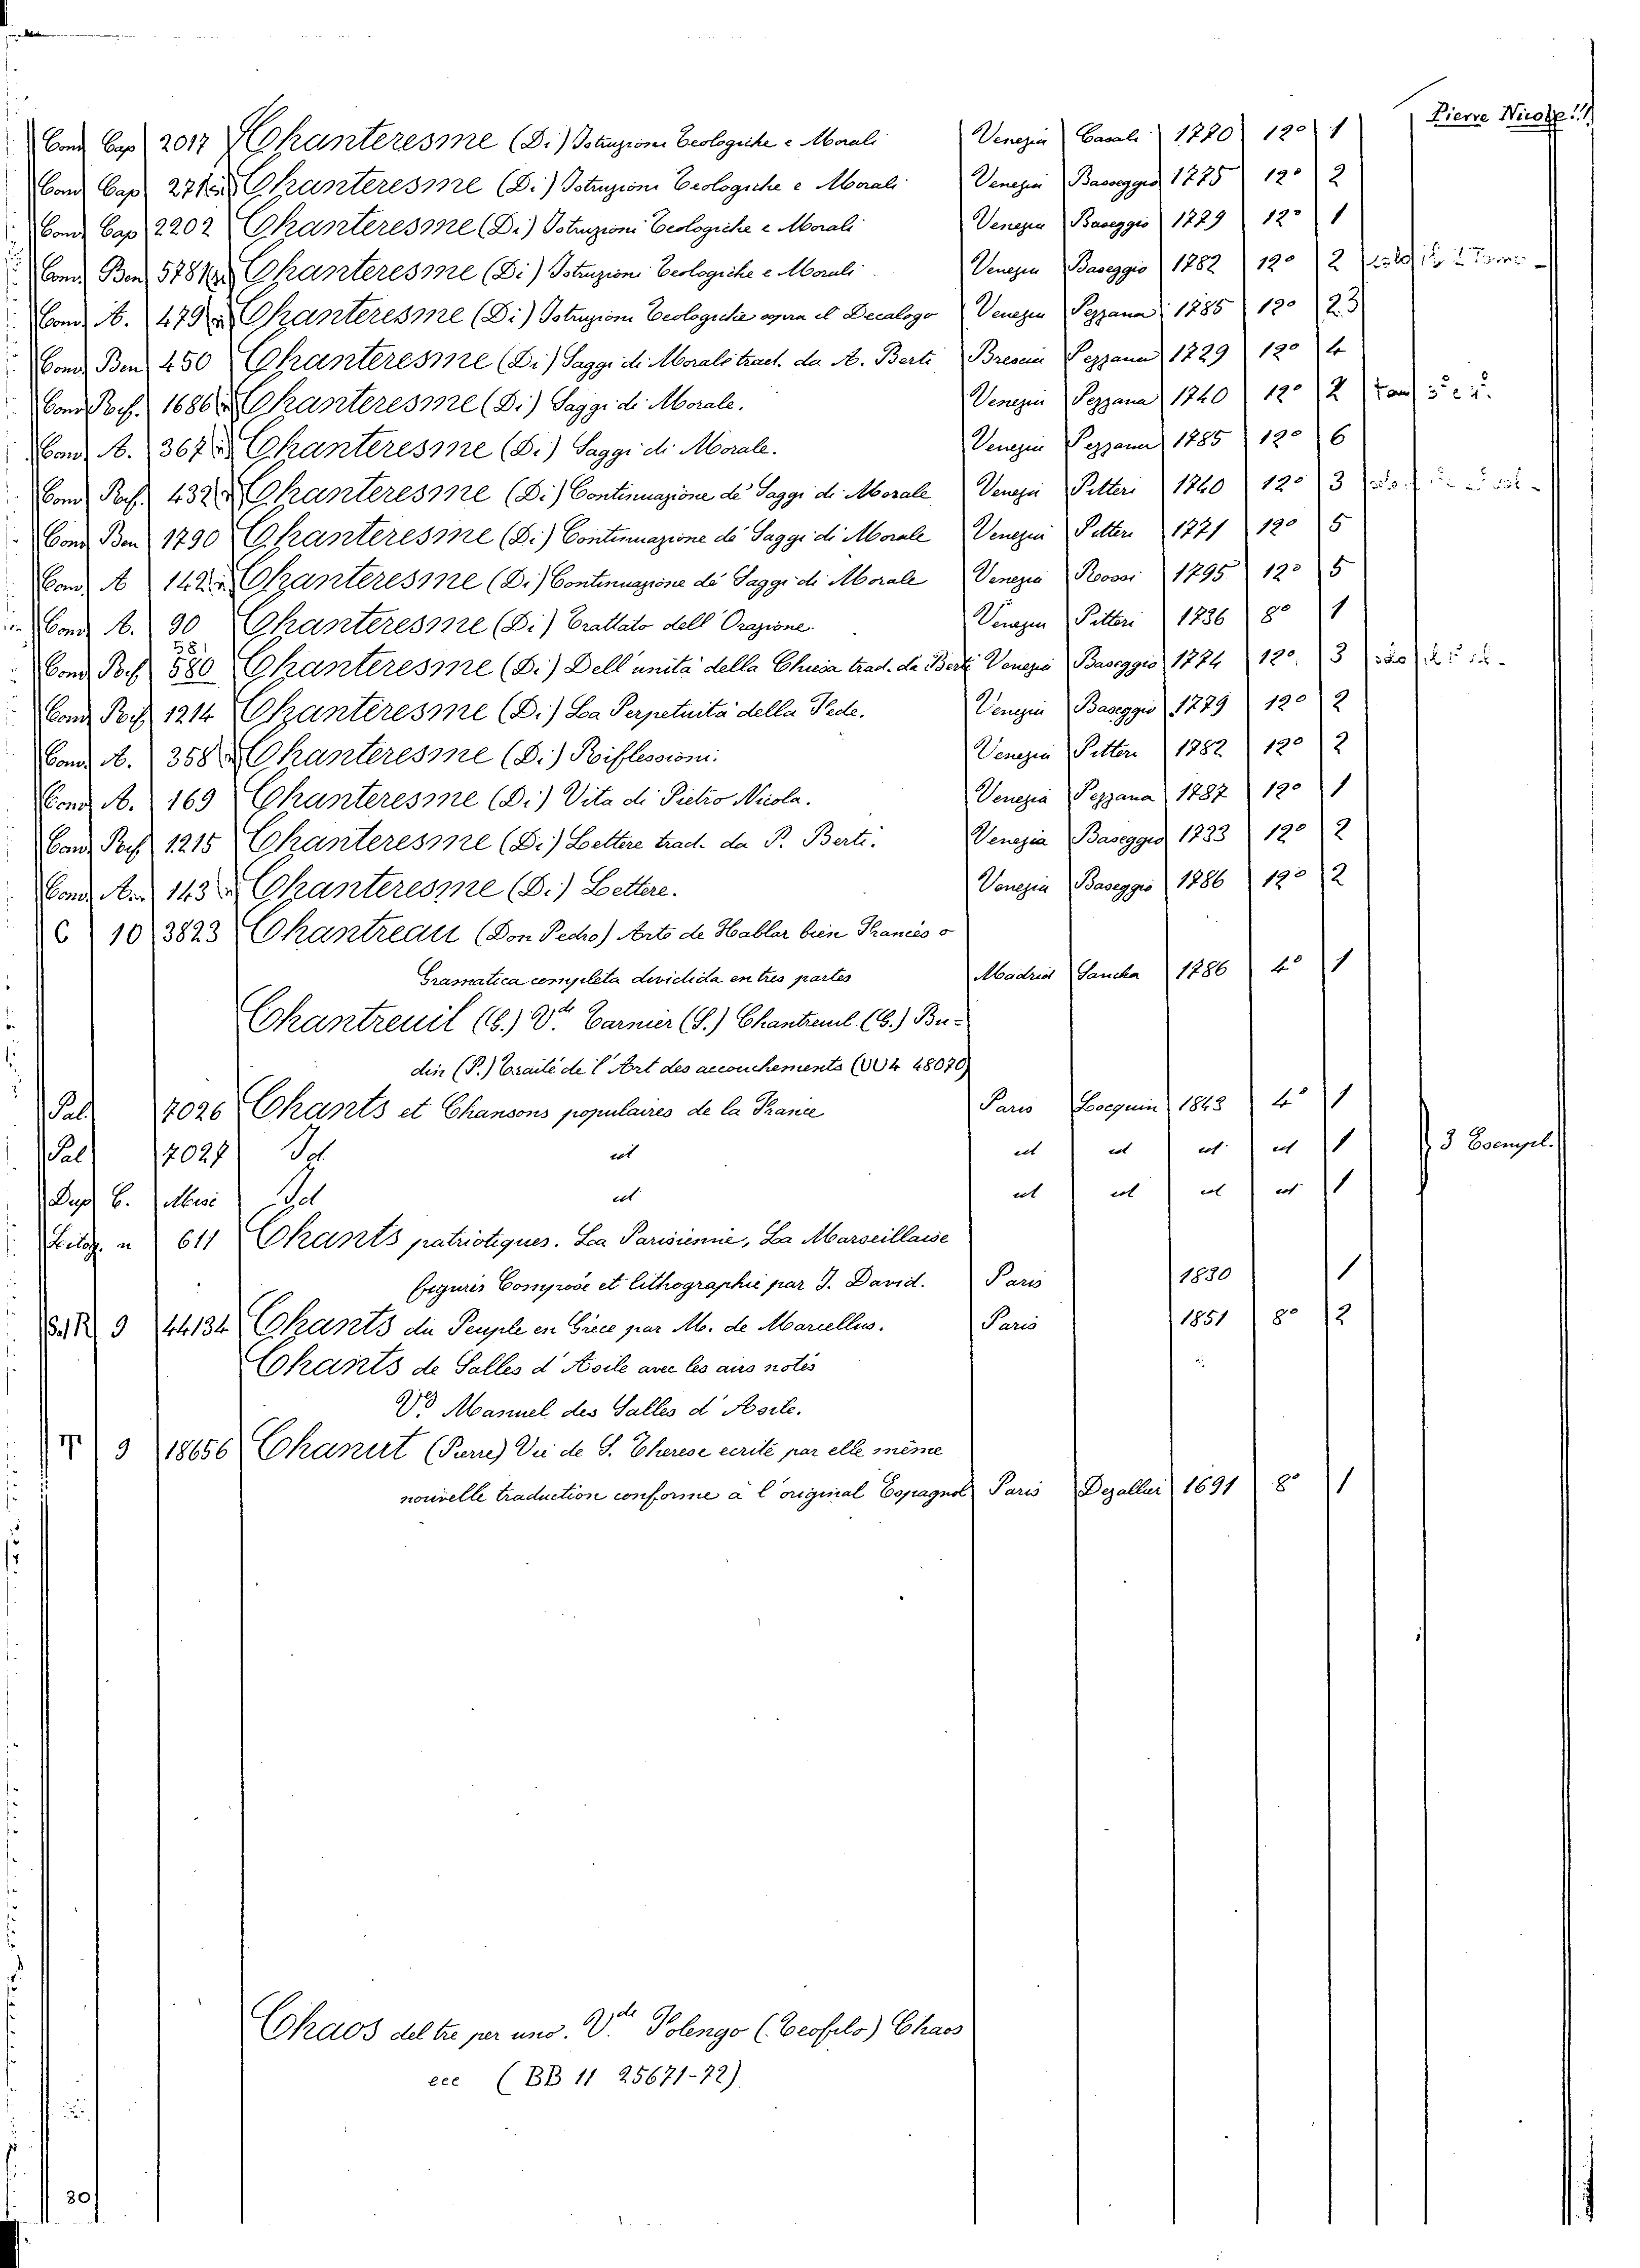 Pierre Nicole!!
Cons Cap 2017 Chanteresme (Di) Istruzioni Teologiche e Morali Venezia Casali 1770 12° 1
Cons Cap Chanteresme (Di) Istruzioni Teologiche e Morali Venezia Baseggio 1775 12° 2
Cons Cap 2202 Chanteresme (Di) Istruzioni Teologiche e Morali Venezia Baseggio 1779 12° 1
Cons Ben Chanteresme (Di) Istruzioni Teologiche e Morali Venezia Baseggio 1782 12° 2
Cons A. 479 Chanteresme (Di) Istruzioni Teologiche sopra il Decalogo Venezia Pezzana 1785 12° 23
Cons Ben 450 Chanteresme (Di) Saggi di Morale trad. da A. Berti Brescia Pezzana 1729 12° 4
Cons Posf. 1686 Chanteresme (Di) Saggi di Morale. Venezia Pezzana 1740 12° 2
Cons A. 367 Chanteresme (Di) Saggi di Morale. Venezia Pezzana 1785 12° 6
Cons Posf. 432 Chanteresme (Di) Continuazione de Saggi di Morale Venezia Pitteri 1740 12° 3
Cons Ben 1790 Chanteresme (Di) Continuazione de Saggi di Morale Venezia Pitteri 1771 12° 5
Cons A 142 Chanteresme (Di) Continuazione de Saggi di Morale Venezia Rossi 1795 12° 5
Cons A. 90 Chanteresme (Di) Trattato dell' Orazione. Venezia Pitteri 1736 8° 1
581
Cons Posf 580 Chanteresme (Di) Dell' unità della Chiesa trad. da Berti Venezia Baseggio 1774 12° 3
Cons Posf 1214 Chanteresme (Di) La Perpetuità della Fede. Venezia Baseggio 1779 12° 2
Cons A. 358 Chanteresme (Di) Riflessioni. Venezia Pitteri 1782 12° 2
Cons A. 169 Chanteresme (Di) Vita di Pietro Nicola. Venezia Pezzana 1787 12° 1
Cons Posf 1215 Chanteresme (Di) Lettere trad. da P. Berti. Venezia Baseggio 1733 12° 2
Cons 143 Chanteresme (Di) Lettere. Venezia Baseggio 1786 12° 2
C 10 3823 Chantreau (Don Pedro) Arte de Hablar bien Francès o
Gramatica completa dividida en tres partes Madrid Sancha 1786 4° 1
Chantreuil (C.) V.di Tarnier (S.) Chantreuil (C.) Bu-
din (P.) Traité de l'Art des accouchements (UU4 48070)
Pal. 7026 Chants et Chansons populaires de la France Paris Locquin 1843 4° 1
Pal 7027 Id. ut ut ut ut ut 1 3 Esempl.
Dup C. Misc Id ut ut ut ut ut 1
611 Chants patriotiques. La Parisienne, La Marseillaise
figures Composé et lithographié par J. David. Paris 1830 1
9 44134 Chants du Peuple en Grèce par M. de Marcellus. Paris 1851 8° 2
Chants de Salles d'Asile avec les airs notés
V.° Manuel des Salles d'Asile.
T 9 18656 Chanut (Pierre) Vie de S. Therese ecrite par elle même
nouvelle traduction conforme à l'original Espagnol Paris Dezallier 1691 8° 1
Chaos del tre per uno. V.di Folengo (Teofilo) Chaos
ecc (BB 11 25671-72)
30